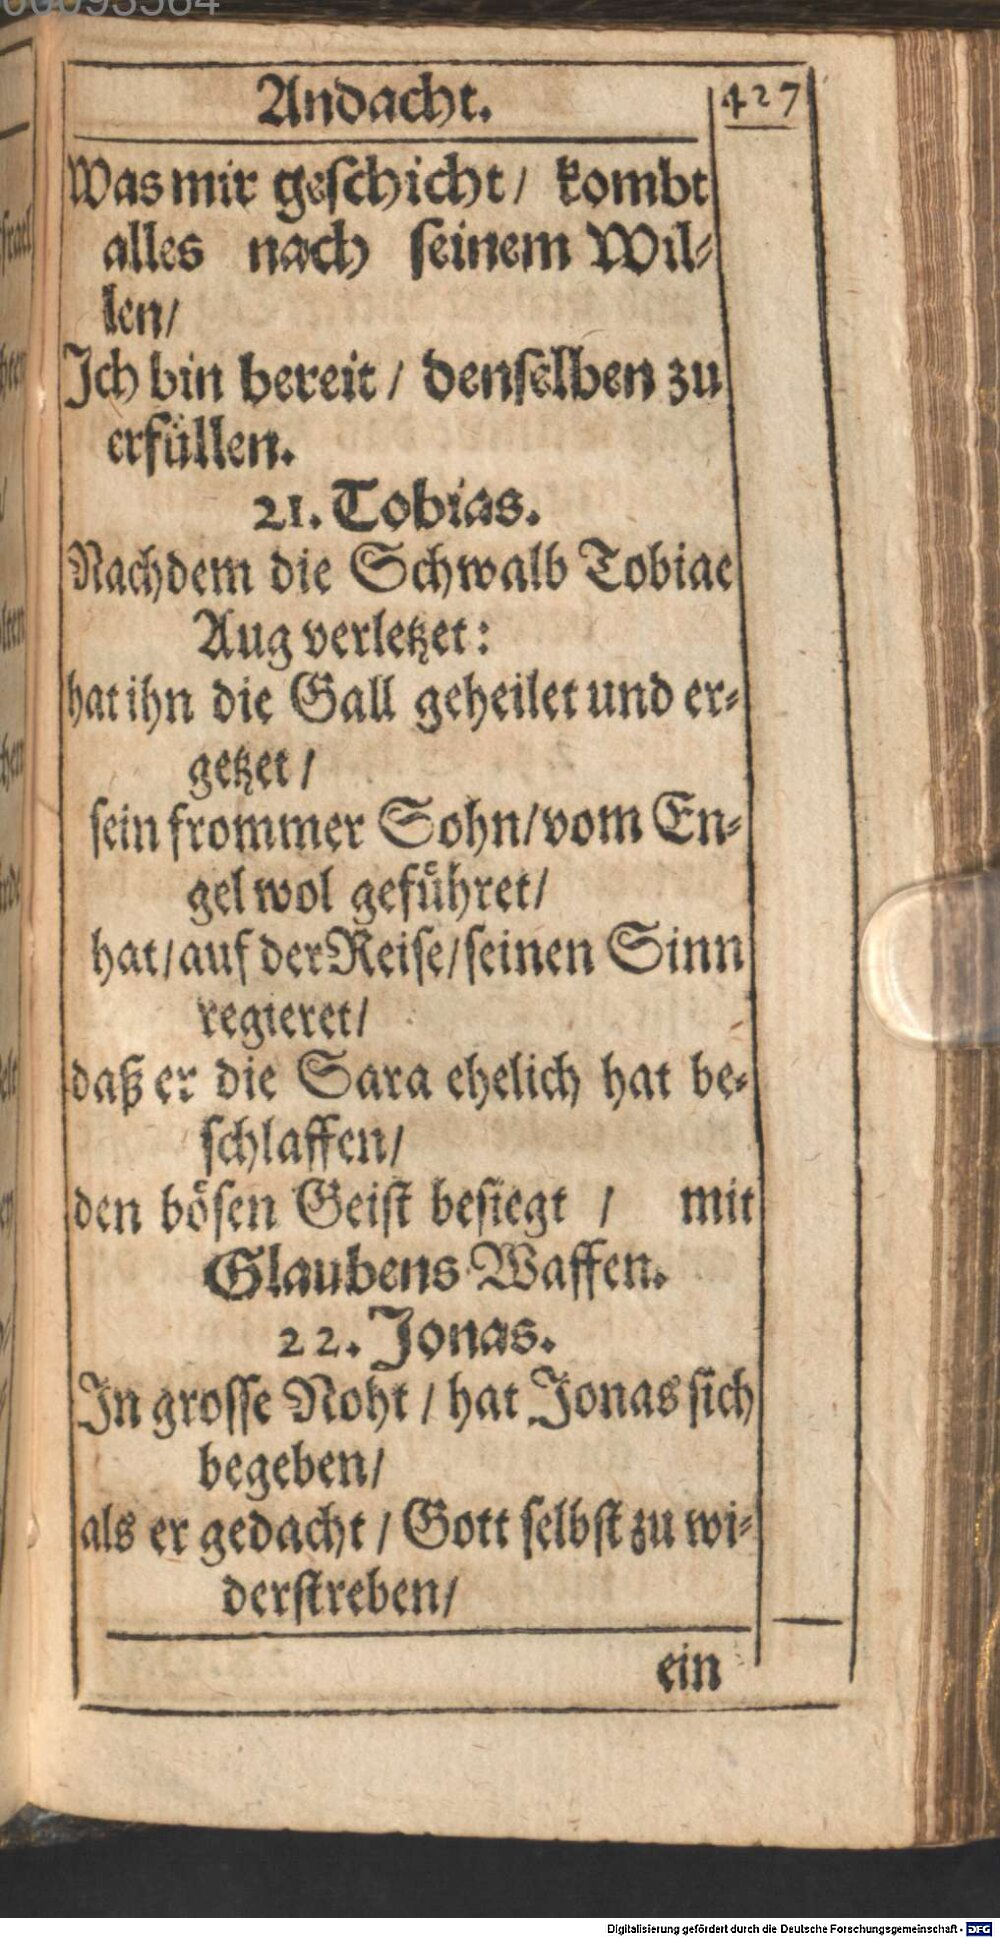 Andacht. 427
Was mir geschicht/ kombt
alles nach seinem Wil-
len/
Ich bin bereit/ denselben zu
erfüllen.
21. Tobias.
Nachdem die Schwalb Tobiae
Aug verletzet:
hat ihn die Gall geheilet und er-
getzet/
sein frommer Sohn/vom En-
gel wol geführet/
hat/auf der Reise/seinen Sinn
regieret/
daß er die Sara ehelich hat be-
schlaffen/
den bösen Geist besiegt / mit
Glaubens Waffen.
22. Jonas.
In grosse Noht/ hat Jonas sich
begeben/
als er gedacht/ Gott selbst zu wi-
derstreben/
ein
Digitalisierung gefördert durch die Deutsche Forschungsgemeinschaft - DFG